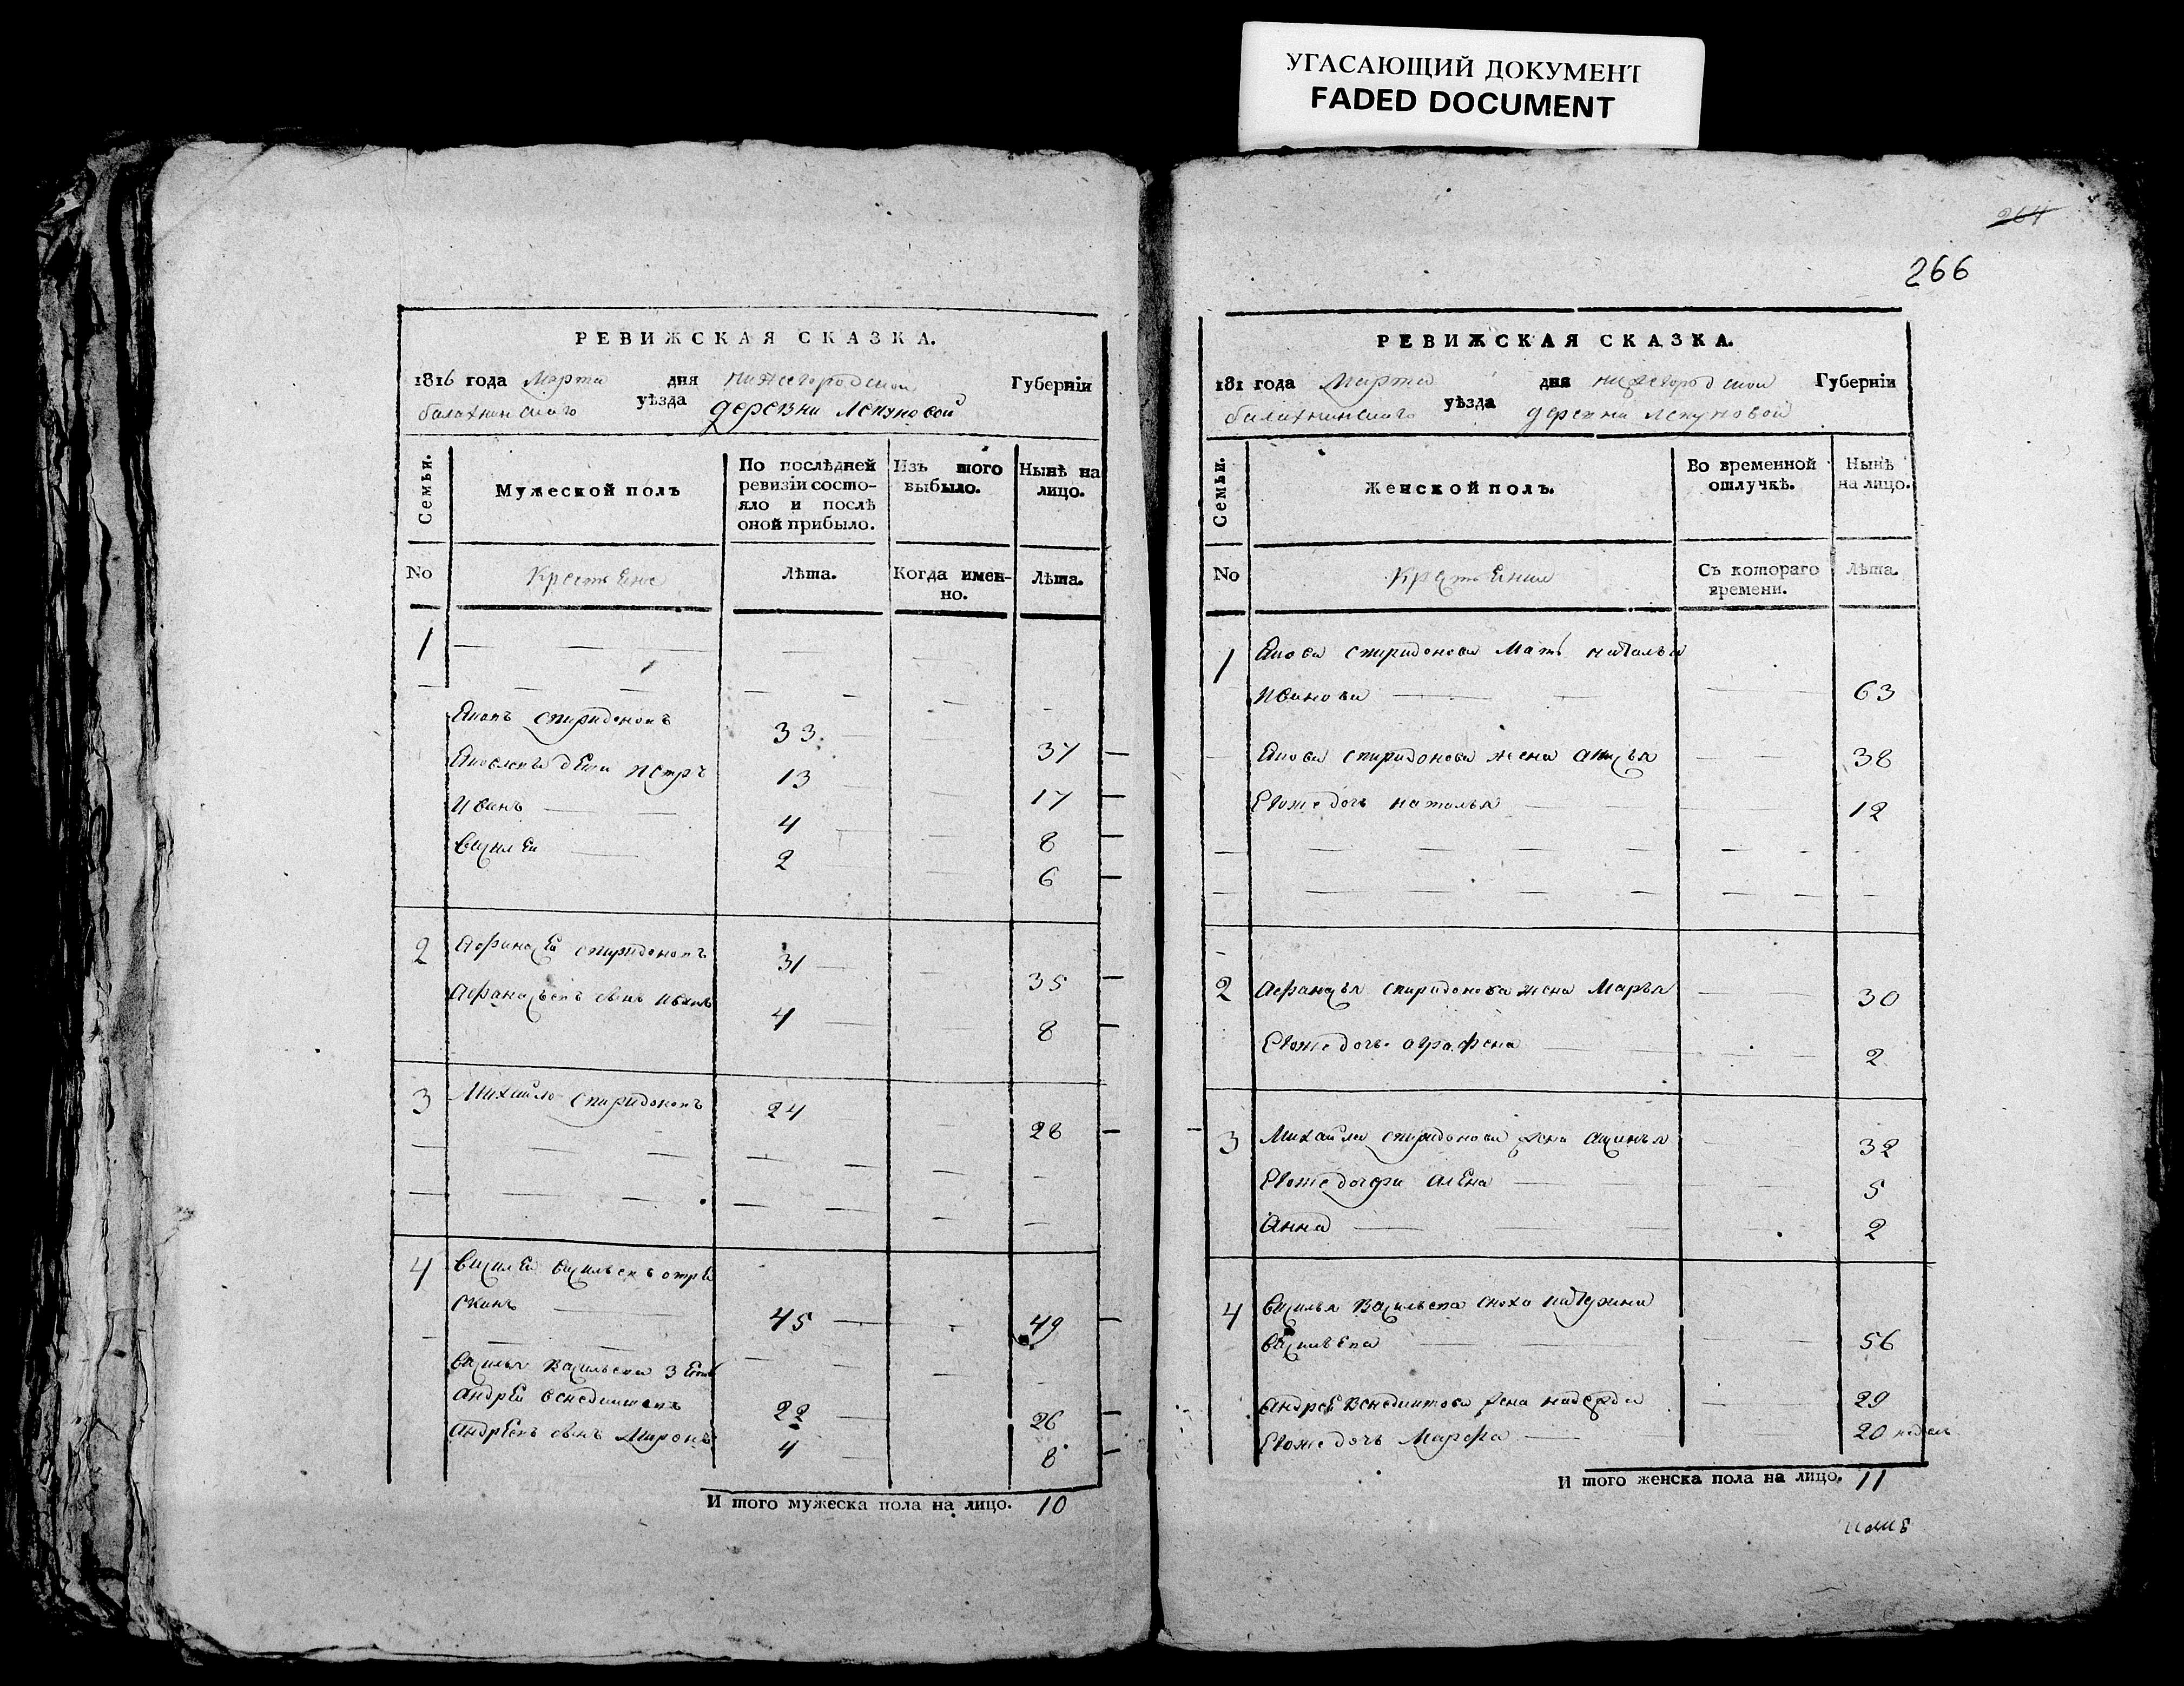 УГАСАЮЩИЙ ДОКУМЕНТ
FADED DOCUMENT
РЕВИЖСКАЯ СКАЗКА.
1816 года Марта дня нижегородской Губернїи
балахнинскаго уѣзда деревни Лепуновой
Семьи.
Мужеской полъ
По послѣдней ревизїи состо-
яло и послѣ
оной прибыло.
Изъ того
выбыло.
Нынѣ на
лицо.
No
Крестьяне
Лѣта.
Когда имен-
но.
Лѣта.
1
Яковъ Спиридоновъ 33 37
Яковлевы дѣти Петръ 13 17
Иванъ 4 8
Василей 2 6
2 Афанасей Спиридоновъ 31 35
Афанасьевъ сынъ Иванъ 4 8
3 Михайло Спиридоновъ 24 28
4 Василей Васильевъ
45 49
Василья Васильева зять
Андрей Венедиктовъ 22 26
Андреевъ сынъ Миронъ 4 8
И того мужеска пола на лицо. 10
264
266
РЕВИЖСКАЯ СКАЗКА.
181 года Марта дня нижегородской Губернїи
балахнинскаго уѣзда деревни Лепуновой
Семьи.
Женской полъ.
Во временной
отлучкѣ.
Нынѣ
на лицо.
No
Крестьянки
Съ котораго
времени.
Лѣта.
1 Якова Спиридонова Мать Наталья
Иванова 63
Якова Спиридонова жена 38
Евоже дочь Наталья 12
2 Афанасья Спиридонова жена Марья 30
Евоже дочь Аграфена 2
3 Михайла Спиридонова жена Аксинья 32
Евоже дочери Алена 5
Анна 2
4 Василья Васильева сноха Катерина
Васильева 56
Андрея Венедиктова жена Надежда 29
Евоже дочь Марфа 20 недель
И того женска пола на лицо. 11